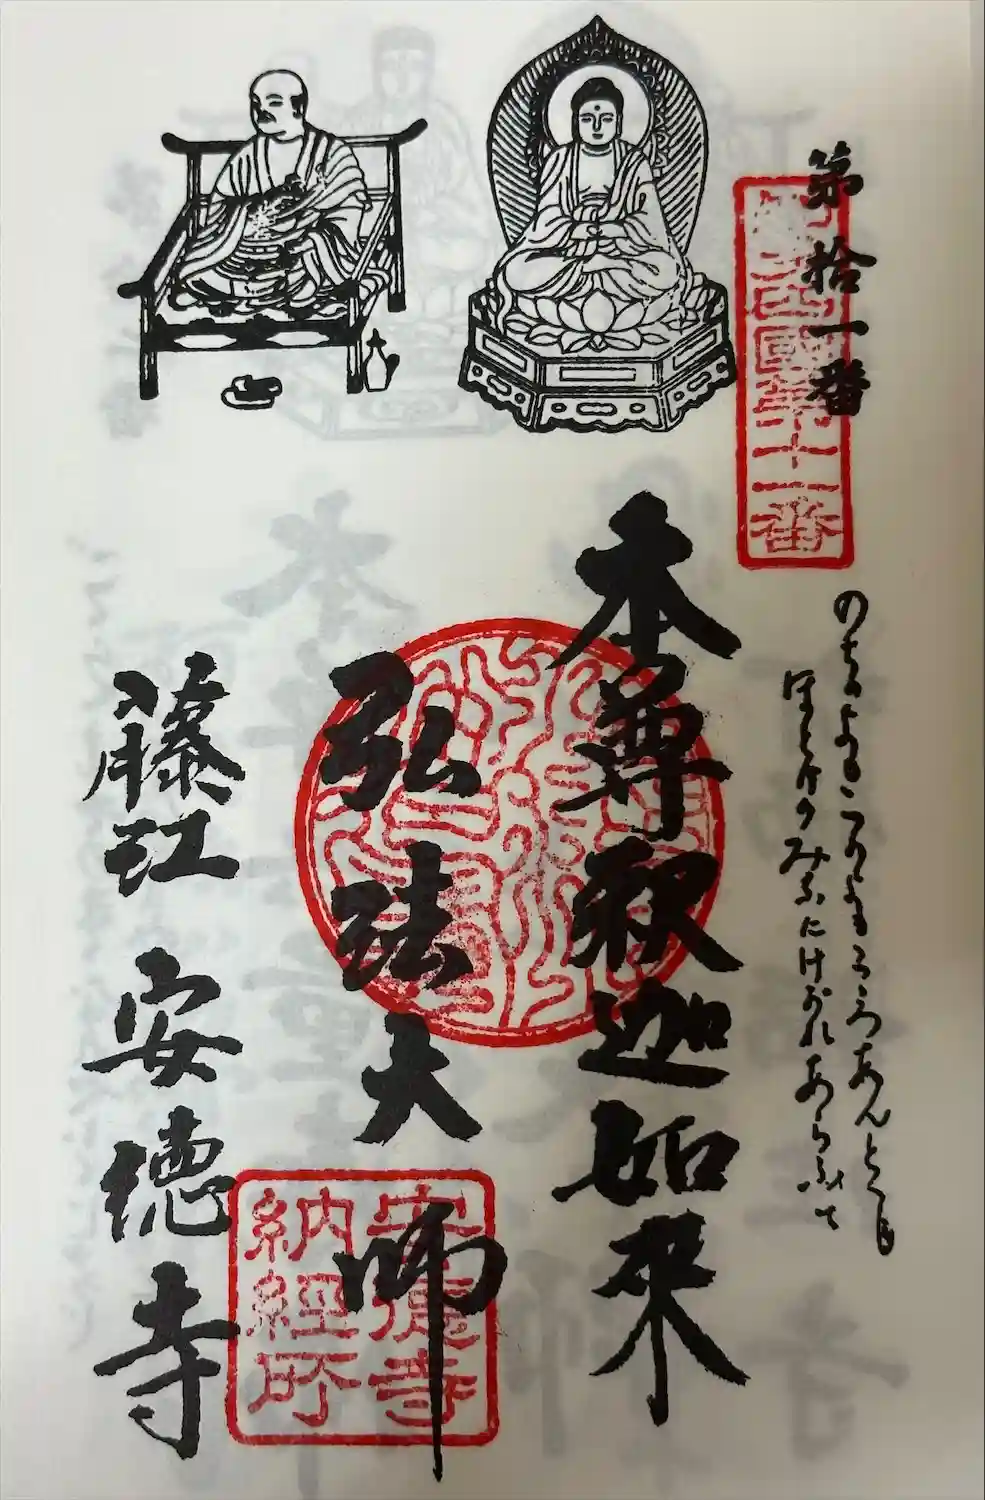 第拾一番
西國第十一番
のちのよもこのよもこころあんとくじ
ほとけのみなにけがれあらふて
本尊釈迦如来
弘法大師
安德寺
納経所
藤江 安徳寺